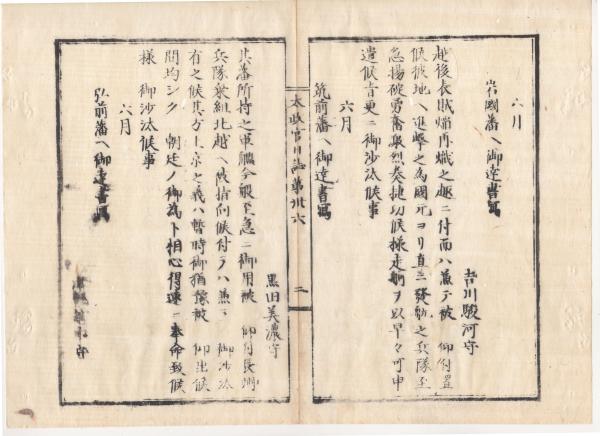 六月
岩國藩へ御達書寫
吉川駿河守
越後表賊焔再熾之趣ニ付而ハ兼テ被 仰付置
候彼地へ進撃之為國元ヨリ直ニ發軔之兵隊至
急揚碇勇奮激烈奏捷功候様走舸ヲ以早々可申
遣候旨更ニ御沙汰候事
六月
筑前藩へ御達書寫
黒田美濃守
其藩所持之軍艦今般至急ニ御用被 仰付長州
兵隊乗組北越へ被指向候付テハ兼テ 御沙汰
有之候其方上京之義ハ暫時御猶豫被 仰出候
間均シク 朝廷ノ御為ト相心得速ニ奉命致候
様 御沙汰候事
六月
弘前藩へ御達書寫
守
太政官日誌第卅六
二